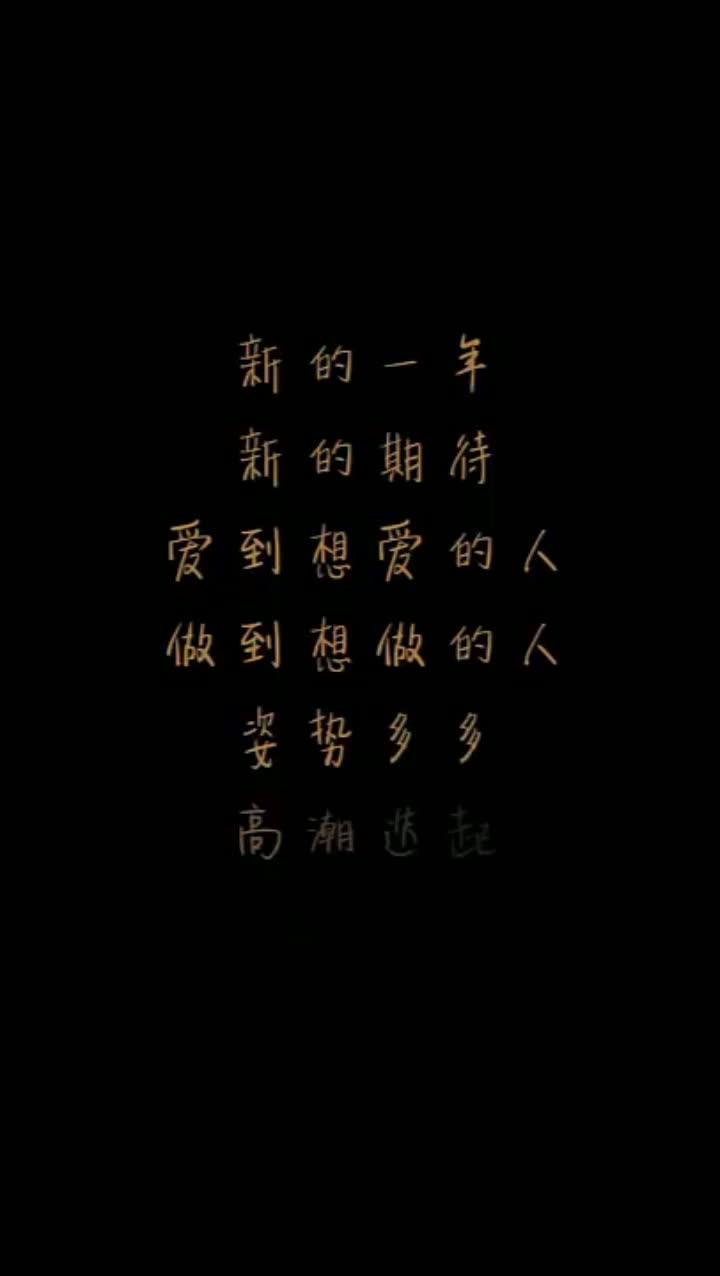 新的一年
新的期待
爱到想爱的人
做到想做的人
姿势多多
高潮迭起